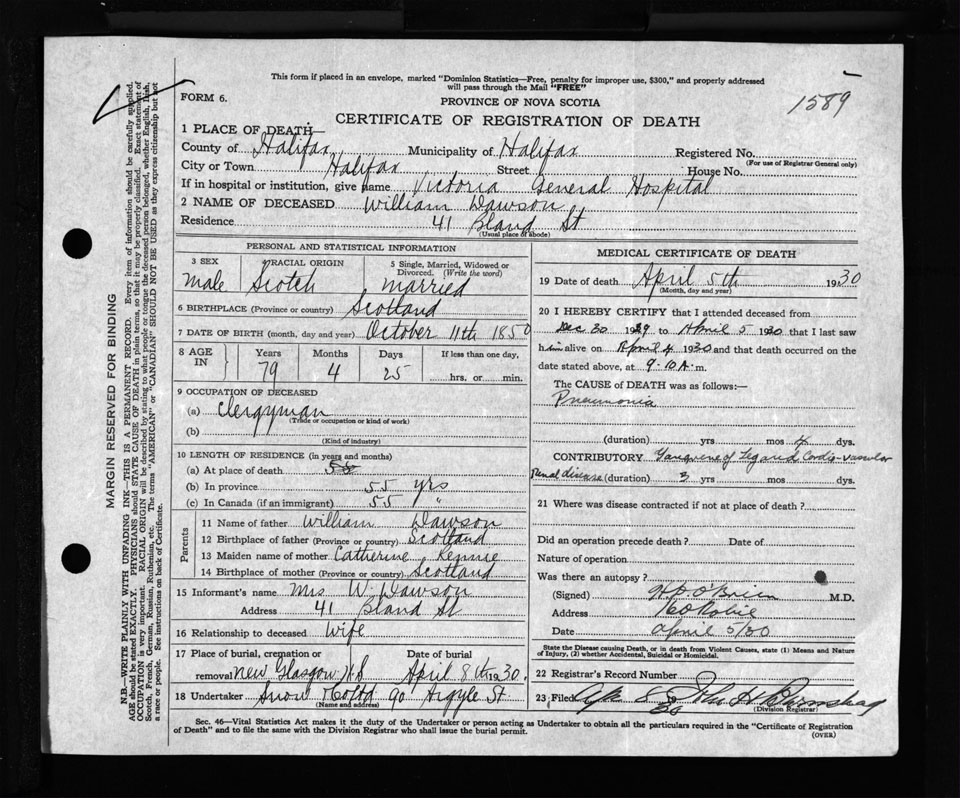 This form if placed in an envelope, marked "Dominion Statistics—Free, penalty for improper use, $300," and properly addressed
will pass through the Mail "FREE"
1589
FORM 6.
PROVINCE OF NOVA SCOTIA
CERTIFICATE OF REGISTRATION OF DEATH
1 PLACE OF DEATH—
County of Halifax Municipality of Halifax Registered No.
(For use of Registrar General only)
City or Town Halifax Street House No.
If in hospital or institution, give name Victoria General Hospital
2 NAME OF DECEASED William Dawson
Residence 41 Bland St
(Usual place of abode)
PERSONAL AND STATISTICAL INFORMATION
3 SEX RACIAL ORIGIN 5 Single, Married, Widowed or Divorced. (Write the word)
male Scotch married
6 BIRTHPLACE (Province or country) Scotland
7 DATE OF BIRTH (month, day and year) October 11th 1850
8 AGE IN Years Months Days If less than one day,
79 4 25 hrs. or min.
9 OCCUPATION OF DECEASED
(a) Clergyman
(Trade or occupation or kind of work)
(b)
(Kind of industry)
10 LENGTH OF RESIDENCE (in years and months)
(a) At place of death 55
(b) In province 55 yrs
(c) In Canada (if an immigrant) 55 "
Parents
11 Name of father William Dawson
12 Birthplace of father (Province or country) Scotland
13 Maiden name of mother Catherine Rennie
14 Birthplace of mother (Province or country) Scotland
15 Informant's name Mrs W. Dawson
Address 41 Bland St
16 Relationship to deceased Wife
17 Place of burial, cremation or removal Date of burial
New Glasgow N.S April 8th 1930.
18 Undertaker Snow & Co Ltd 90 Argyle St
(Name and address)
MEDICAL CERTIFICATE OF DEATH
19 Date of death April 5th 1930
(Month, day and year)
20 I HEREBY CERTIFY that I attended deceased from
Dec 30 1929 to April 5 1930 that I last saw
him alive on April 4 1930 and that death occurred on the
date stated above, at 9.10 A.m.
The CAUSE OF DEATH was as follows:—
Pneumonia
(duration) yrs mos 4 dys.
CONTRIBUTORY Gangrene of leg and Cardio-vascular
renal disease (duration) 3 yrs mos. dys.
21 Where was disease contracted if not at place of death?
Did an operation precede death? Date of
Nature of operation
Was there an autopsy?
(Signed) O'Brien M.D.
Address Robie
Date April 5/30
State the Disease causing Death, or in death from Violent Causes, state (1) Means and Nature of Injury, (2) whether Accidental, Suicidal or Homicidal.
22 Registrar's Record Number
23 Filed Apr 8 30 John H Barnstead
(Division Registrar)
Sec. 46—Vital Statistics Act makes it the duty of the Undertaker or person acting as Undertaker to obtain all the particulars required in the "Certificate of Registration
of Death" and to file the same with the Division Registrar who shall issue the burial permit.
(OVER)
MARGIN RESERVED FOR BINDING
N.B.—WRITE PLAINLY WITH UNFADING INK—THIS IS A PERMANENT RECORD. Every item of information should be carefully supplied.
AGE should be stated EXACTLY. PHYSICIANS should STATE CAUSE OF DEATH in plain terms, so that it may be properly classified. Exact statement of
OCCUPATION is very important. RACIAL ORIGIN will be described by stating to what people or tongue the deceased person belonged, whether English, Irish,
Scotch, French, German, Russian, Ruthenian, etc. The terms "AMERICAN" or "CANADIAN" SHOULD NOT BE USED as they express citizenship but not
a race or people. See instructions on back of Certificate.